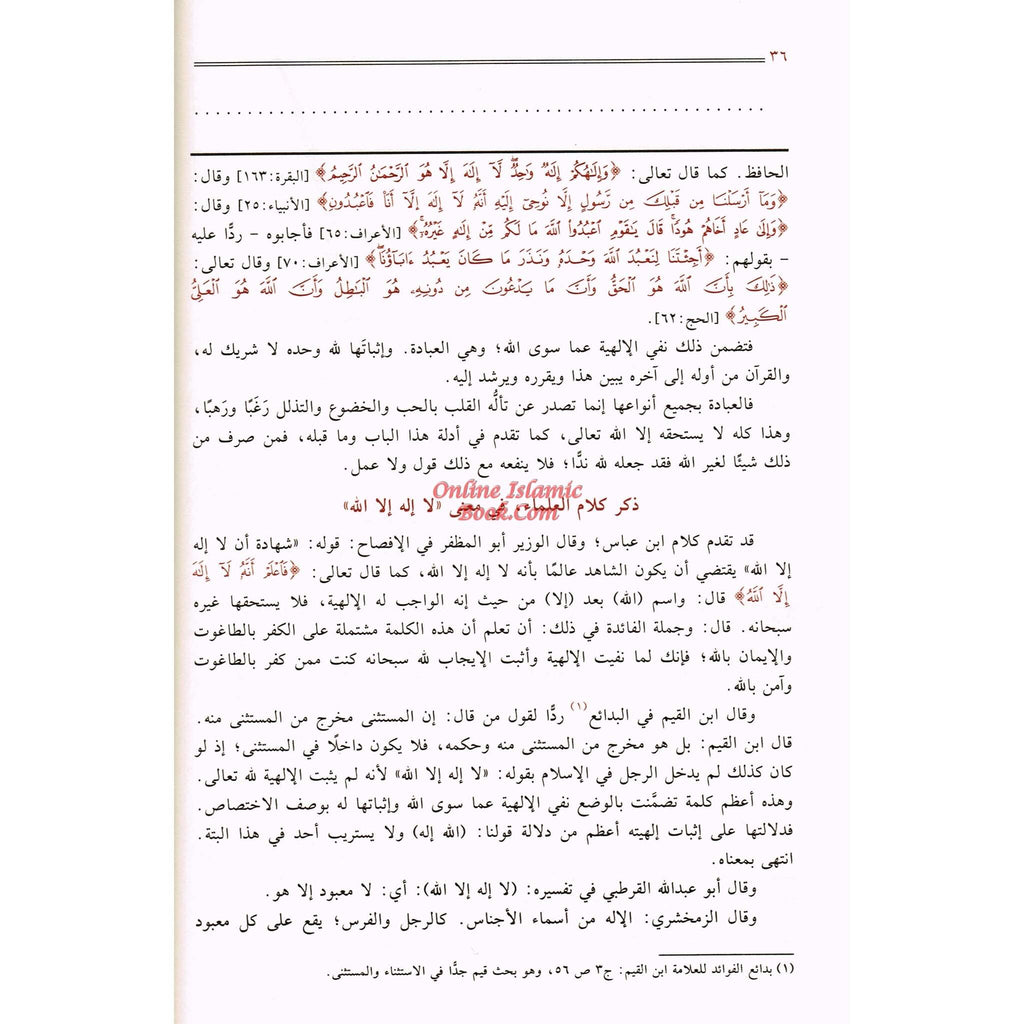 ٣٦
الحافظ. كما قال تعالى: ﴿وَإِلَٰهُكُمْ إِلَٰهٌ وَٰحِدٌ لَّآ إِلَٰهَ إِلَّا هُوَ ٱلرَّحْمَٰنُ ٱلرَّحِيمُ﴾ [البقرة:١٦٣] وقال:
﴿وَمَآ أَرْسَلْنَا مِن قَبْلِكَ مِن رَّسُولٍ إِلَّا نُوحِىٓ إِلَيْهِ أَنَّهُۥ لَآ إِلَٰهَ إِلَّآ أَنَا۠ فَٱعْبُدُونِ﴾ [الأنبياء:٢٥] وقال:
﴿وَإِلَىٰ عَادٍ أَخَاهُمْ هُودًا ۗ قَالَ يَٰقَوْمِ ٱعْبُدُوا۟ ٱللَّهَ مَا لَكُم مِّنْ إِلَٰهٍ غَيْرُهُۥٓ ۚ﴾ [الأعراف:٦٥] فأجابوه – ردًّا عليه
– بقولهم: ﴿أَجِئْتَنَا لِنَعْبُدَ ٱللَّهَ وَحْدَهُۥ وَنَذَرَ مَا كَانَ يَعْبُدُ ءَابَآؤُنَا ۖ﴾ [الأعراف:٧٠] وقال تعالى:
﴿ذَٰلِكَ بِأَنَّ ٱللَّهَ هُوَ ٱلْحَقُّ وَأَنَّ مَا يَدْعُونَ مِن دُونِهِۦ هُوَ ٱلْبَٰطِلُ وَأَنَّ ٱللَّهَ هُوَ ٱلْعَلِىُّ
ٱلْكَبِيرُ﴾ [الحج:٦٢].
فتضمن ذلك نفي الإلهية عما سوى الله؛ وهي العبادة. وإثباتَها لله وحده لا شريك له،
والقرآن من أوله إلى آخره يبين هذا ويقرره ويرشد إليه.
فالعبادة بجميع أنواعها إنما تصدر عن تألُّه القلب بالحب والخضوع والتذلل رَغَبًا ورَهبًا،
وهذا كله لا يستحقه إلا الله تعالى، كما تقدم في أدلة هذا الباب وما قبله، فمن صرف من
ذلك شيئًا لغير الله فقد جعله لله ندًّا؛ فلا ينفعه مع ذلك قول ولا عمل.
Online Islamic
Book.Com
ذكر كلام العلماء، في معنى «لا إله إلا الله»
قد تقدم كلام ابن عباس؛ وقال الوزير أبو المظفر في الإفصاح: قوله: «شهادة أن لا إله
إلا الله» يقتضي أن يكون الشاهد عالمًا بأنه لا إله إلا الله، كما قال تعالى: ﴿فَٱعْلَمْ أَنَّهُۥ لَآ إِلَٰهَ
إِلَّا ٱللَّهُ﴾ قال: واسم (الله) بعد (إلا) من حيث إنه الواجب له الإلهية، فلا يستحقها غيره
سبحانه. قال: وجملة الفائدة في ذلك: أن تعلم أن هذه الكلمة مشتملة على الكفر بالطاغوت
والإيمان بالله؛ فإنك لما نفيت الإلهية وأثبت الإيجاب لله سبحانه كنت ممن كفر بالطاغوت
وآمن بالله.
وقال ابن القيم في البدائع(١) ردًّا لقول من قال: إن المستثنى مخرج من المستثنى منه.
قال ابن القيم: بل هو مخرج من المستثنى منه وحكمه، فلا يكون داخلًا في المستثنى؛ إذ لو
كان كذلك لم يدخل الرجل في الإسلام بقوله: «لا إله إلا الله» لأنه لم يثبت الإلهية لله تعالى.
وهذه أعظم كلمة تضمَّنت بالوضع نفي الإلهية عما سوى الله وإثباتها له بوصف الاختصاص.
فدلالتها على إثبات إلهيته أعظم من دلالة قولنا: (الله إله) ولا يستريب أحد في هذا البتة.
انتهى بمعناه.
وقال أبو عبدالله القرطبي في تفسيره: (لا إله إلا الله): أي: لا معبود إلا هو.
وقال الزمخشري: الإله من أسماء الأجناس. كالرجل والفرس؛ يقع على كل معبود
(١) بدائع الفوائد للعلامة ابن القيم: ج٣ ص ٥٦، وهو بحث قيم جدًّا في الاستثناء والمستثنى.